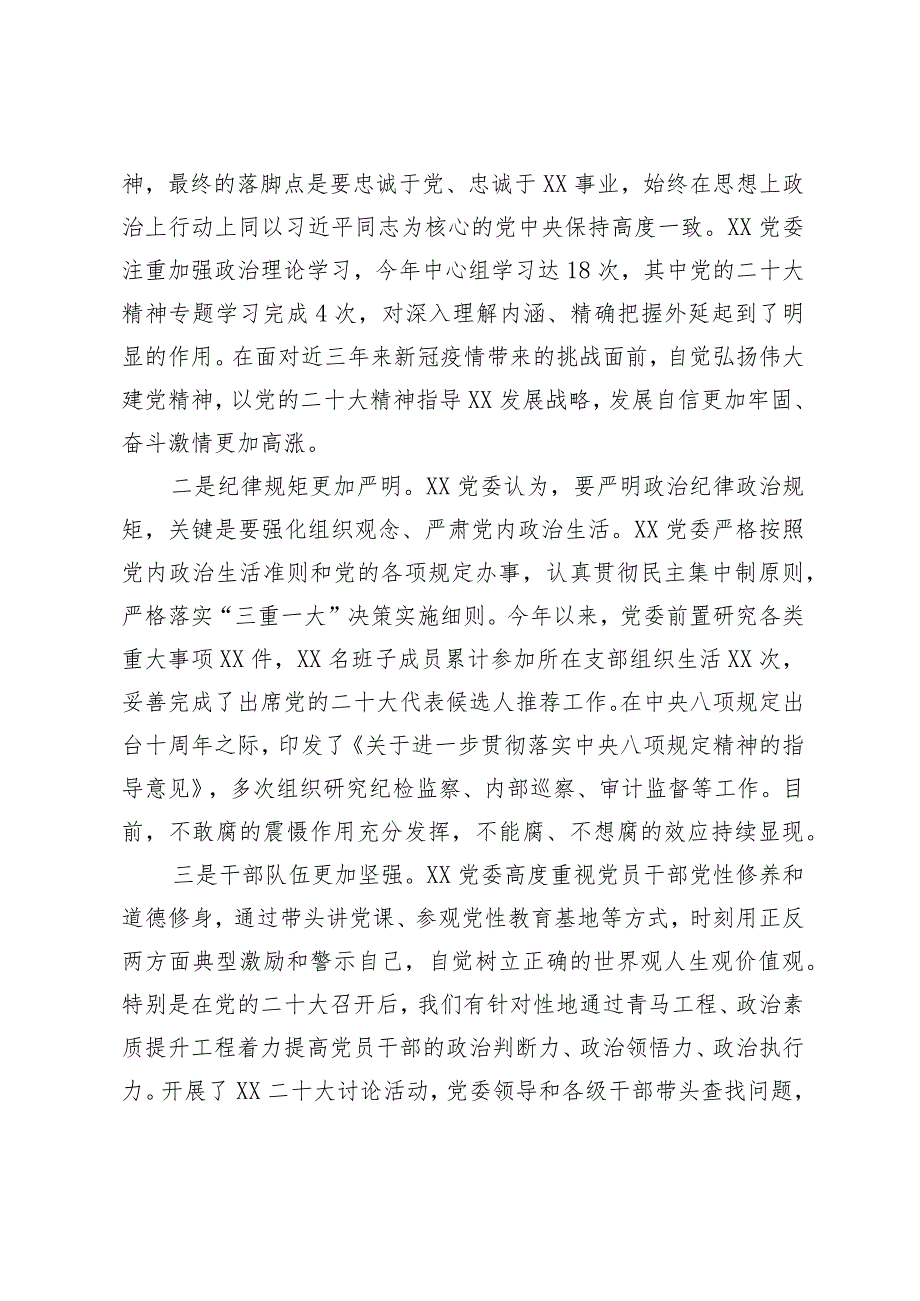 神，最终的落脚点是要忠诚于党、忠诚于 XX 事业，始终在思想上政
治上行动上同以习近平同志为核心的党中央保持高度一致。XX 党委
注重加强政治理论学习，今年中心组学习达 18 次，其中党的二十大
精神专题学习完成 4 次，对深入理解内涵、精确把握外延起到了明
显的作用。在面对近三年来新冠疫情带来的挑战面前，自觉弘扬伟大
建党精神，以党的二十大精神指导 XX 发展战略，发展自信更加牢固、
奋斗激情更加高涨。
二是纪律规矩更加严明。XX 党委认为，要严明政治纪律政治规
矩，关键是要强化组织观念、严肃党内政治生活。XX 党委严格按照
党内政治生活准则和党的各项规定办事，认真贯彻民主集中制原则，
严格落实“三重一大”决策实施细则。今年以来，党委前置研究各类
重大事项 XX 件，XX 名班子成员累计参加所在支部组织生活 XX 次，
妥善完成了出席党的二十大代表候选人推荐工作。在中央八项规定出
台十周年之际，印发了《关于进一步贯彻落实中央八项规定精神的指
导意见》，多次组织研究纪检监察、内部巡察、审计监督等工作。目
前，不敢腐的震慑作用充分发挥，不能腐、不想腐的效应持续显现。
三是干部队伍更加坚强。XX 党委高度重视党员干部党性修养和
道德修身，通过带头讲党课、参观党性教育基地等方式，时刻用正反
两方面典型激励和警示自己，自觉树立正确的世界观人生观价值观。
特别是在党的二十大召开后，我们有针对性地通过青马工程、政治素
质提升工程着力提高党员干部的政治判断力、政治领悟力、政治执行
力。开展了 XX 二十大讨论活动，党委领导和各级干部带头查找问题，